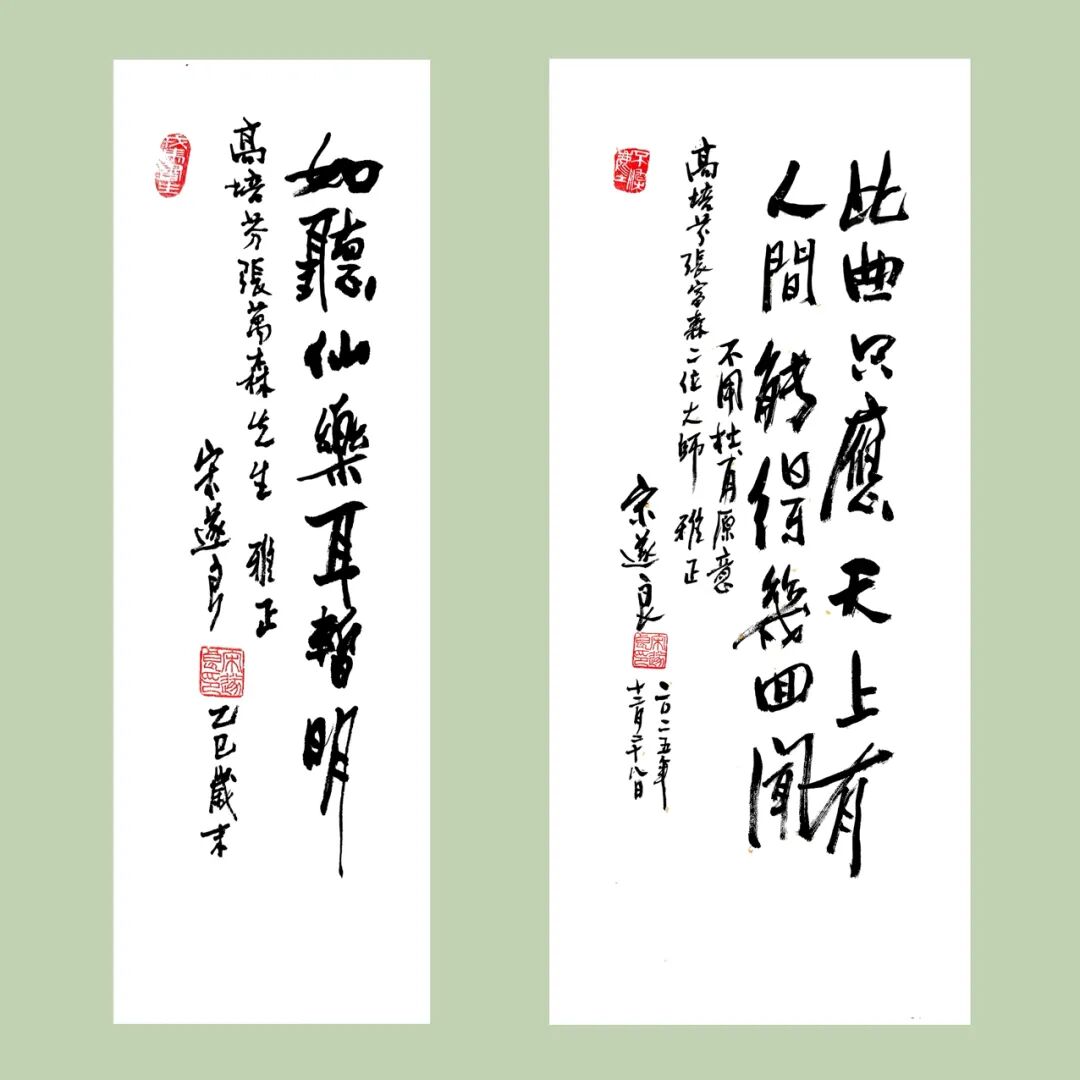 此曲只應天上有
人間能得幾回聞
不用杜甫原意
高培芬張富森二位大師 雅正
宋遂良
宋遂良印
二〇二五年
十二月二十八日
如聽仙樂耳暫明
高培芬張萬森先生 雅正
宋遂良
宋遂良印
乙巳歲末